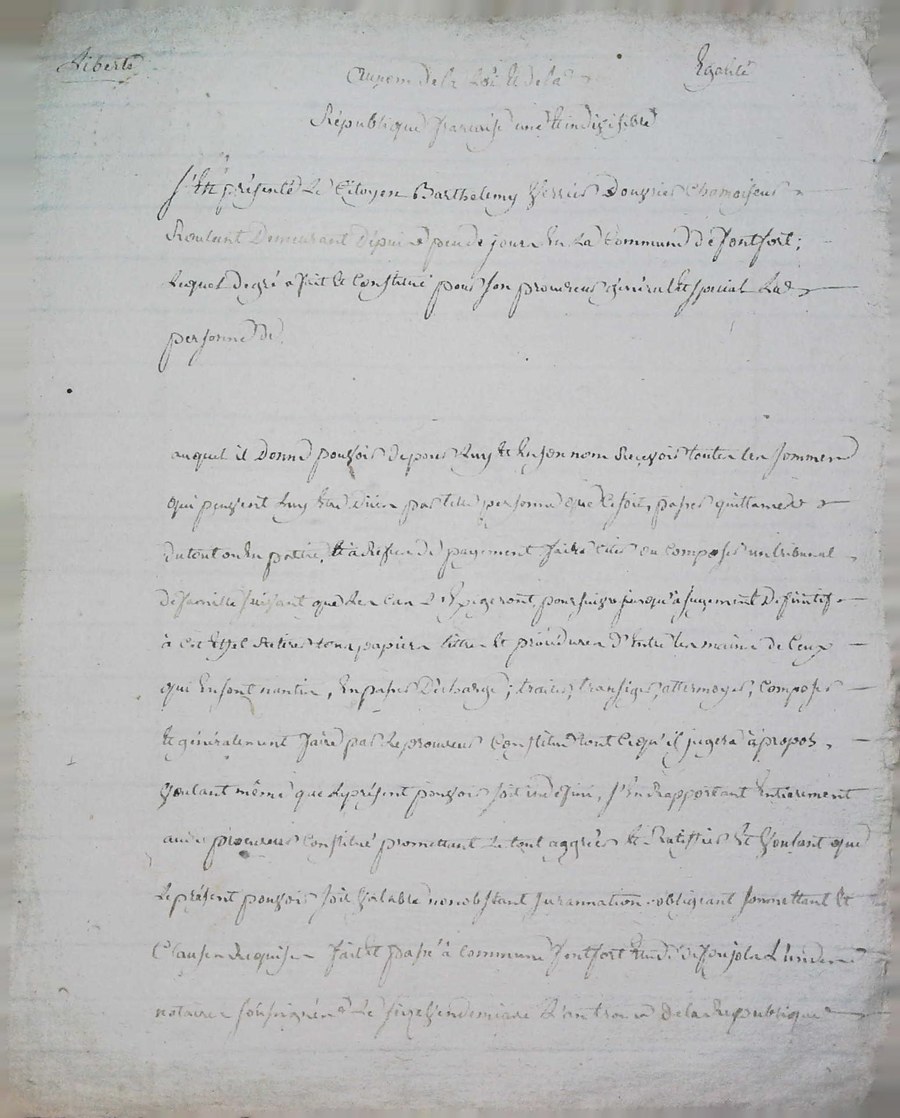 Liberté
Egalité
Au nom de la Loi et de la
République française une et indivisible
s'Est présenté Le Citoyen Barthelemy Verrier Chamoiseur
Roulant Demeurant Dépuis peu de jours En La Commune de fontfort;
Lequel de gré a fait et Constitué pour son procureur général Et special La
personne de
auquel il Donne pouvoir de pour Luy Et En son nom Recevoir toutes les sommes
qui peuvent Luy être Dües par telle personne que Ce soit, passer quittance
du tout ou En partie, Et à Refus De payement faire citer ou Composer un tribunal
de famille suivant que Les Cas L'Exigeront, poursuivre jusqu'a jugement Definitif
à Cet Effet Retirer tous papiers titres Et procédures D'Entre Les mains de Ceux
qui En sont nantis, En passer Décharge; traiter, transiger, attermoyer, Composer
Et généralement faire par Le procureur Constitué tout Ce qu'il jugera à propos,
Voulant même que Le présent pouvoir soit indefini, s'En Rapportant Entierement
audit procureur Constitué promettant Le tout aggréer Et Ratiffier Et Voulant que
Le présent pouvoir soit Valable nonobstant surannation. obligeant soumettant Et
Clauses Requises fait Et passé à Commune fontfort Etude de L'un des
notaires soussignés Le six Vendemiaire L'an trois De La Republique